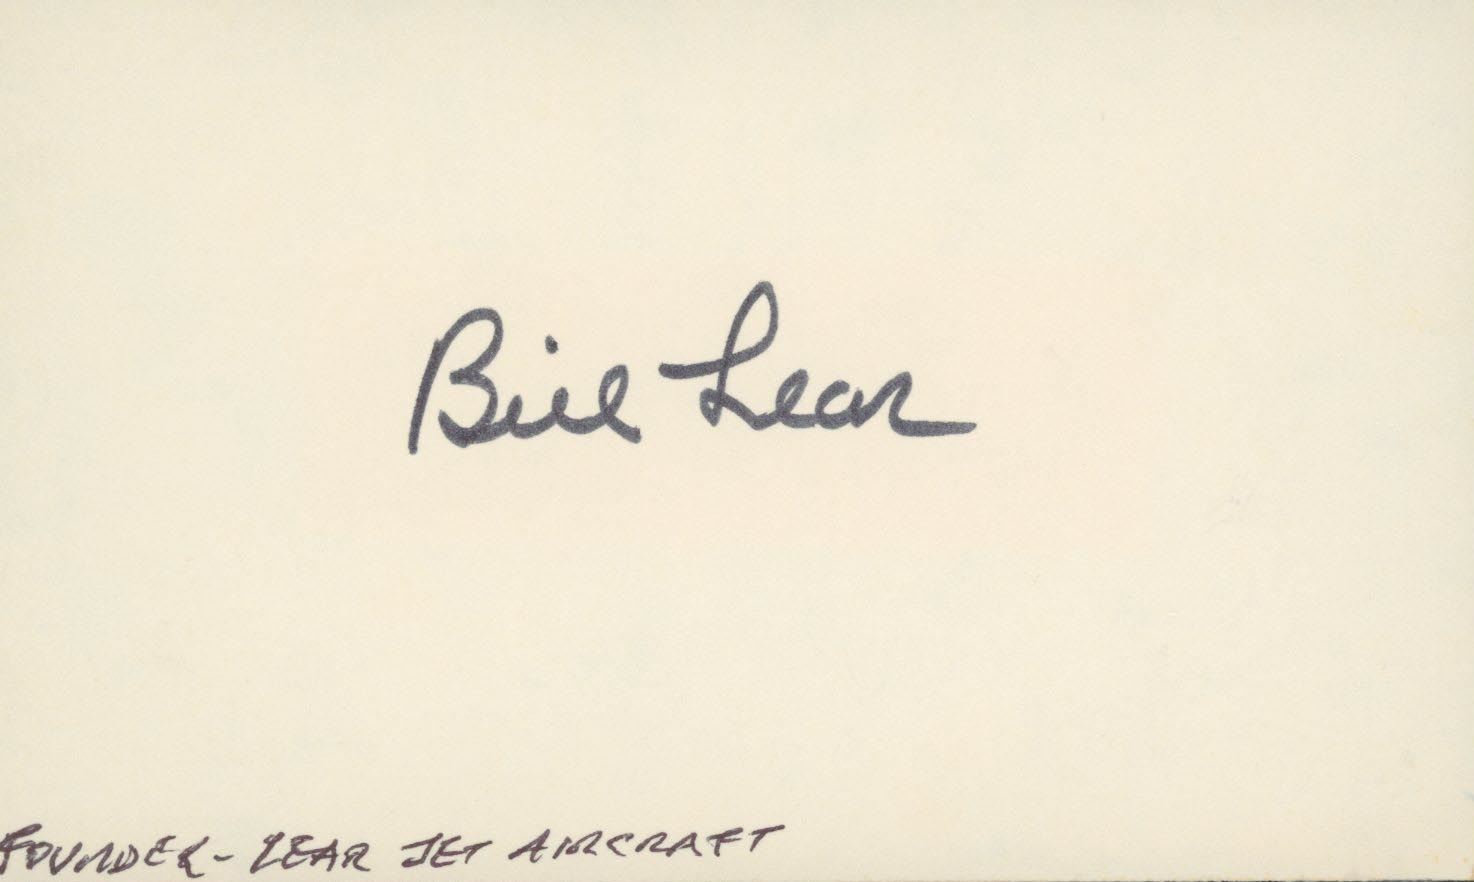 Bill Lear
FOUNDER - LEAR JET AIRCRAFT